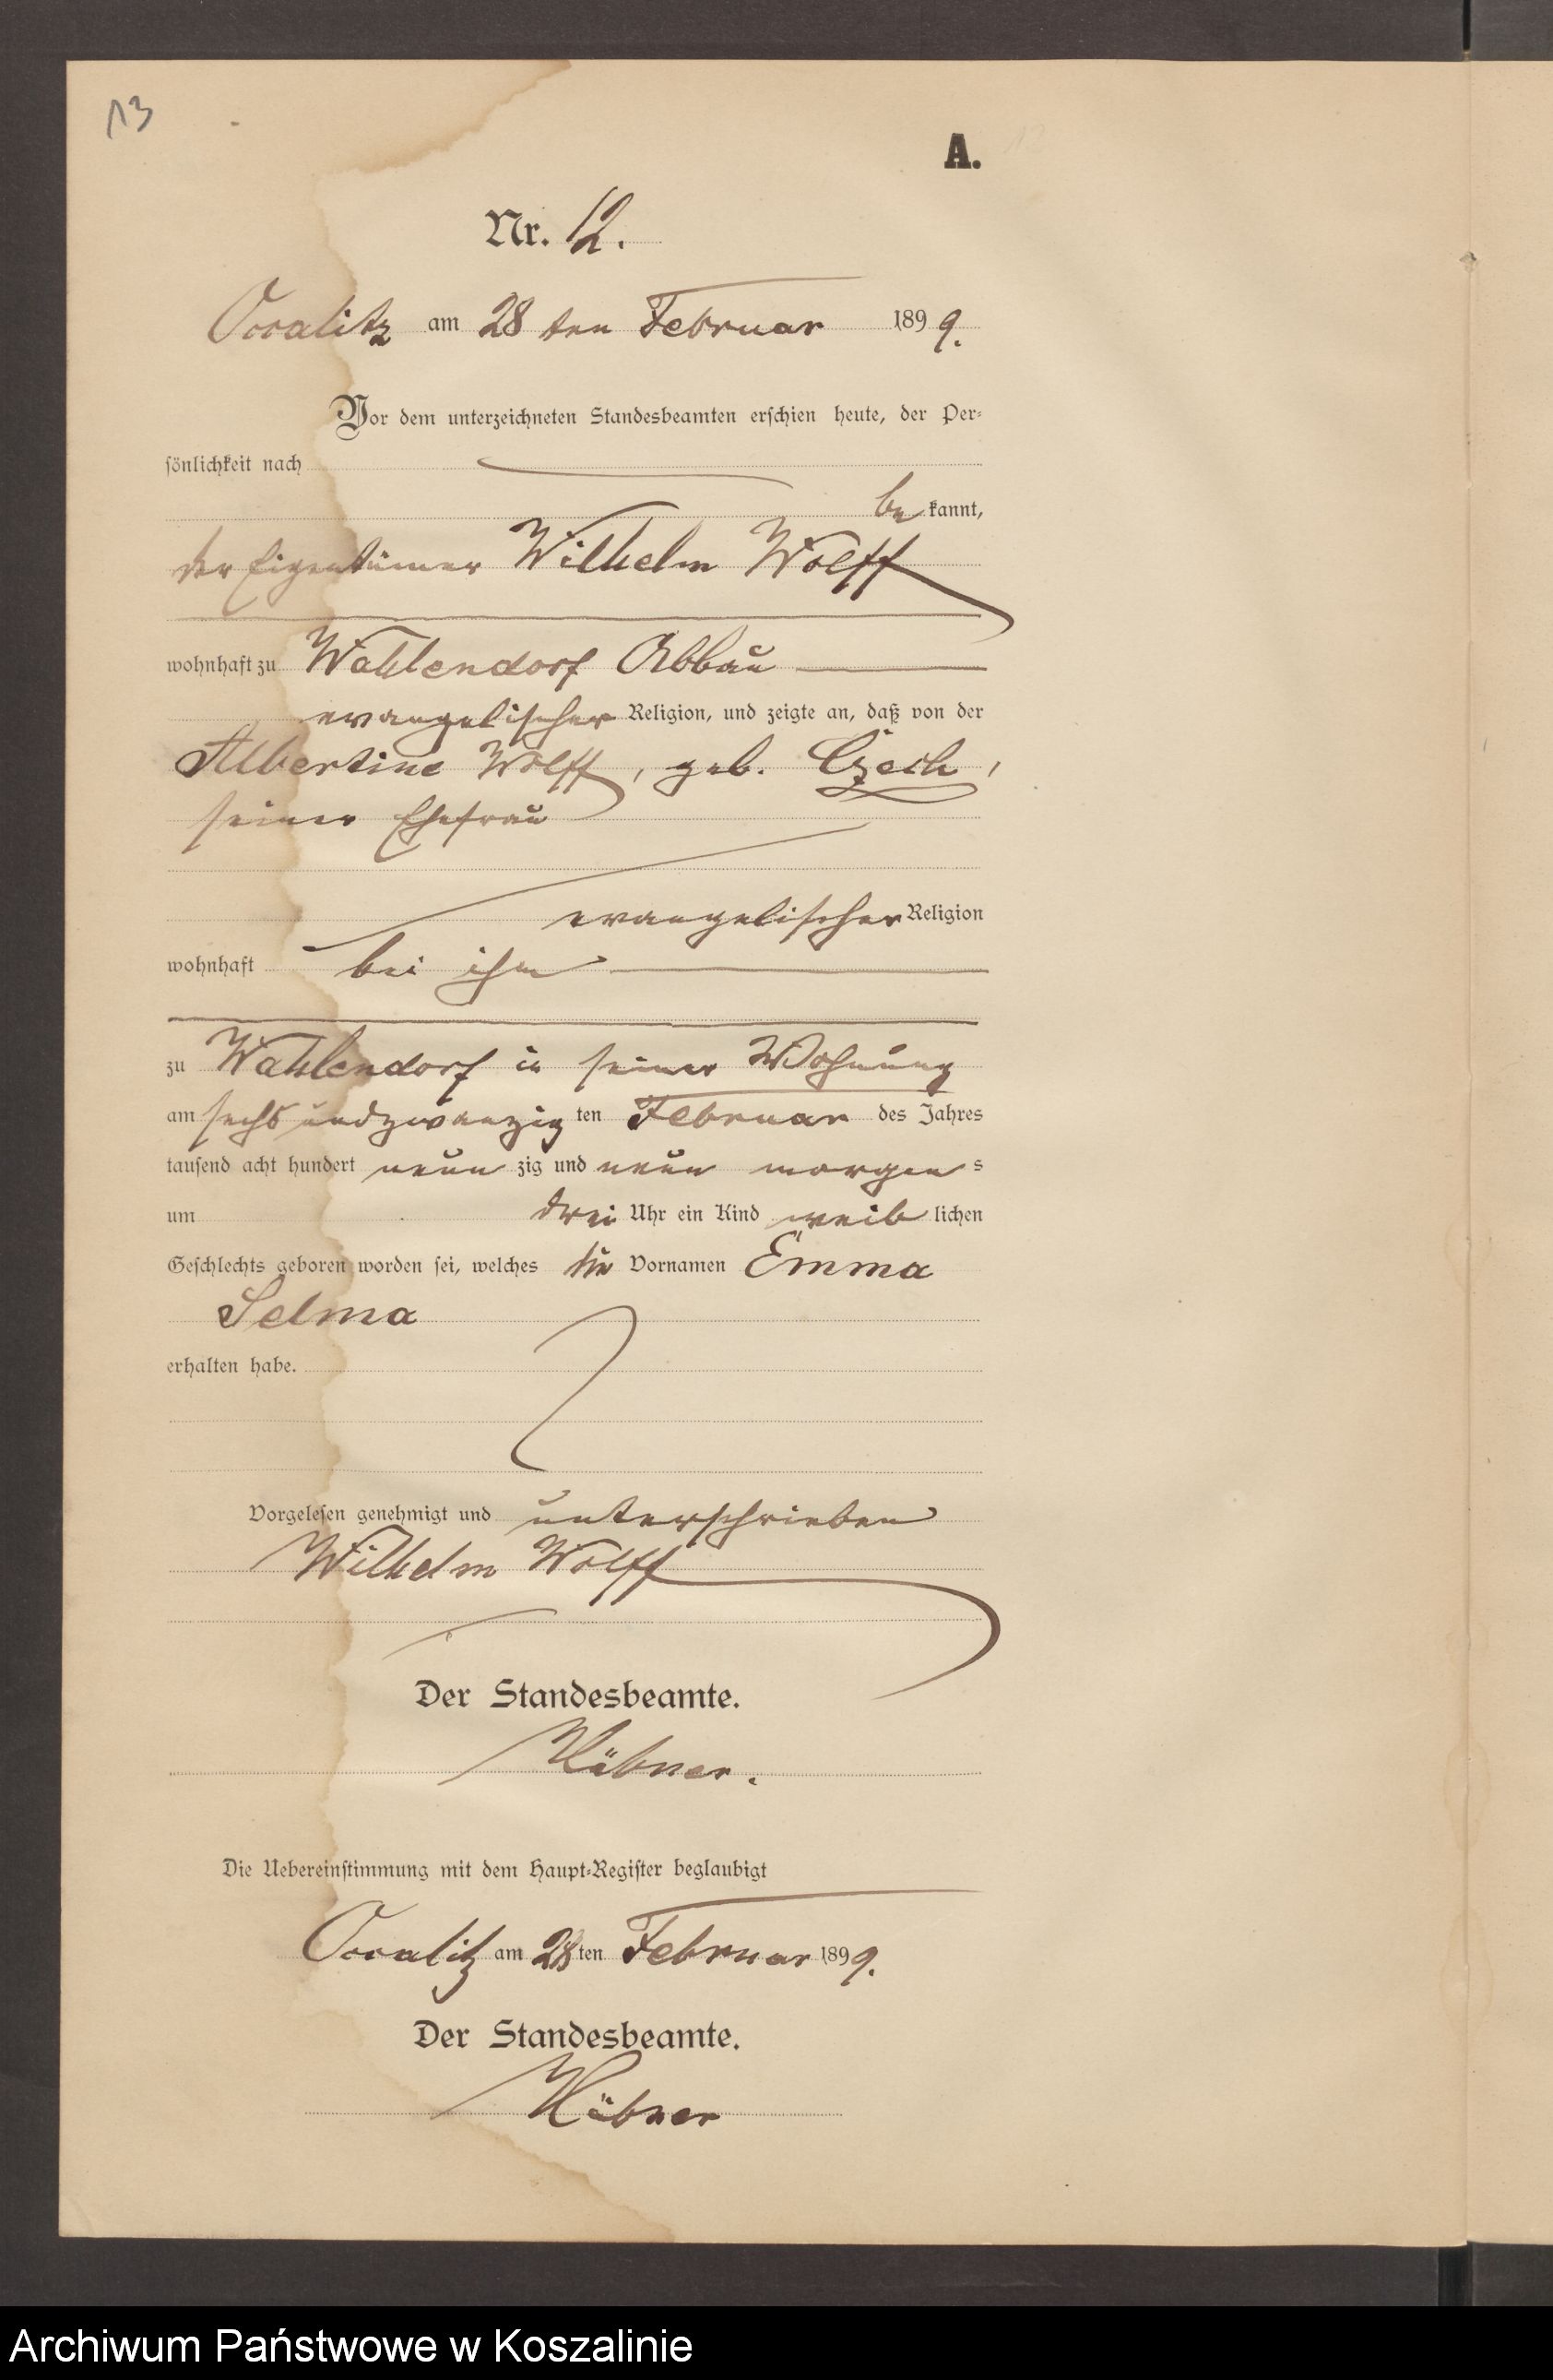 13
A.
Nr. 12.
Occalitz am 28 ten Februar 1899.
Vor dem unterzeichneten Standesbeamten erschien heute, der Per-
sönlichkeit nach
be kannt,
der Eigentümer Wilhelm Wolff
wohnhaft zu Wahlendorf Abbau
evangelischer Religion, und zeigte an, daß von der
Albertine Wolff, geb. Czech,
seiner Ehefrau
evangelischer Religion
wohnhaft bei ihm
zu Wahlendorf in seiner Wohnung
am sechsundzwanzig ten Februar des Jahres
tausend acht hundert neun zig und neun morgen s
um drei Uhr ein Kind weib lichen
Geschlechts geboren worden sei, welches die Vornamen Emma
Selma
erhalten habe.
Vorgelesen genehmigt und unterschrieben
Wilhelm Wolff
Der Standesbeamte.
Hübner.
Die Uebereinstimmung mit dem Haupt-Register beglaubigt
Occalitz am 28 ten Februar 1899.
Der Standesbeamte.
Hübner
Archiwum Państwowe w Koszalinie